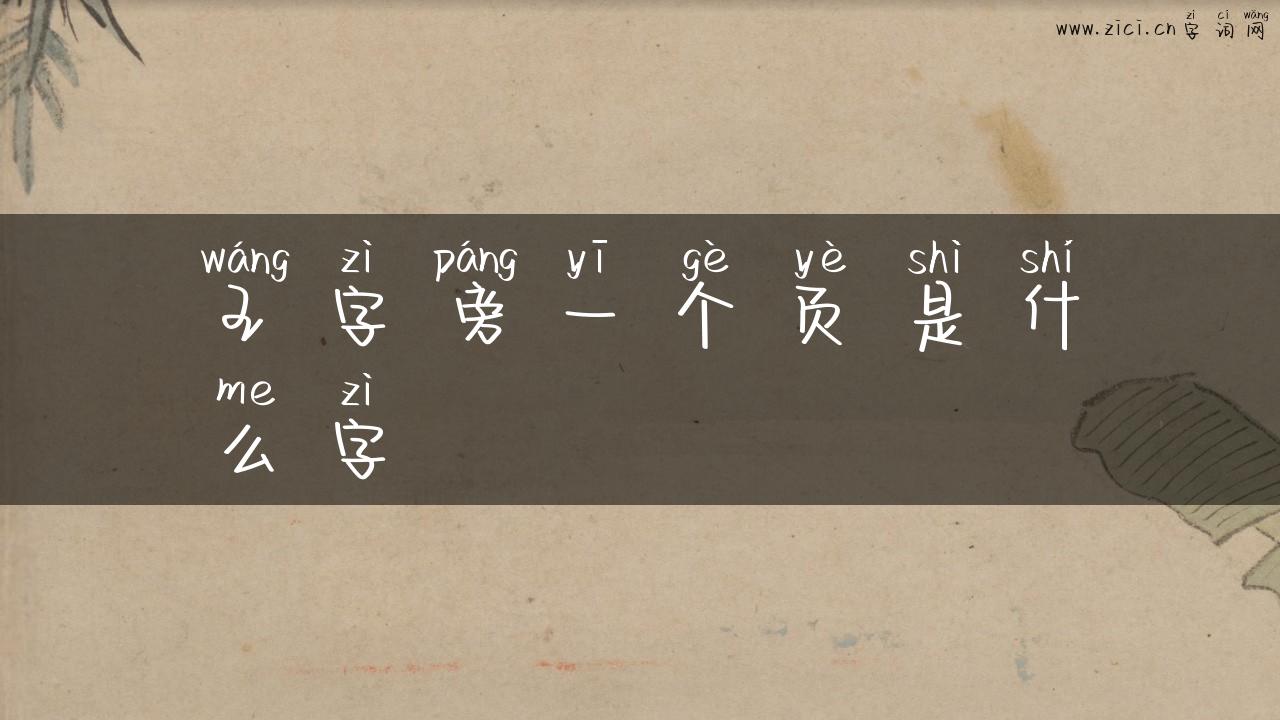 www.zici.cn 字词网
zì cí wǎng
wáng zì páng yī gè yè shì shí
王字旁一个页是什
me zì
么字